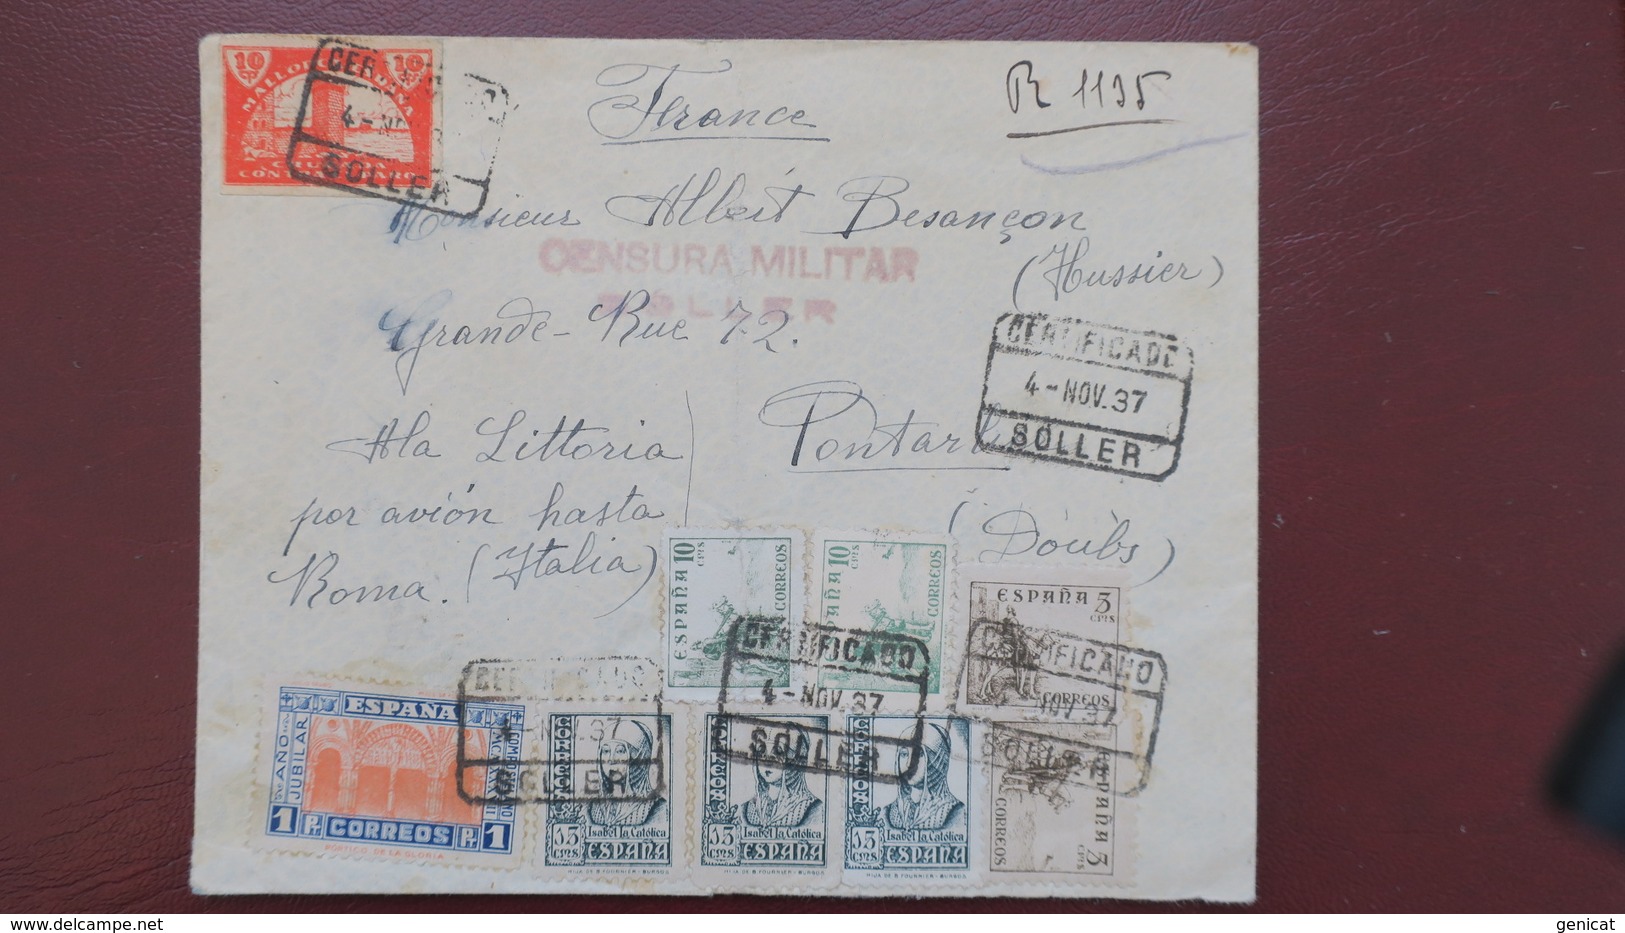 10 10
MALLORCA
CRUZADA
CONTRA EL PARO
CERTIFICADO
4 - NOV. 37
SOLLER
France
R 1195
Monsieur Albert Besançon
(Hussier)
CENSURA MILITAR
SOLLER
Grande-Rue 72.
CERTIFICADO
4 - NOV. 37
SOLLER
Pontarl
(Doubs)
Ala Littoria
por avión hasta
Roma. (Italia)
ESPAÑA 10 CTS
CORREOS
ESPAÑA 10 CTS
CORREOS
ESPAÑA 5 CTS
CORREOS
CERTIFICADO
4 - NOV. 37
SOLLER
CERTIFICADO
4 - NOV. 37
SOLLER
CERTIFICADO
NOV. 37
SOLLER
ESPAÑA
AÑO JUBILAR
1 Pta CORREOS Pta 1
PORTICO DE LA GLORIA
CORREOS
Isabel la Católica
15 CTS ESPAÑA
HIJA DE B. FOURNIER - BURGOS
CORREOS
Isabel la Católica
15 CTS ESPAÑA
HIJA DE B. FOURNIER - BURGOS
CORREOS
Isabel la Católica
15 CTS ESPAÑA
HIJA DE B. FOURNIER - BURGOS
CORREOS
ESPAÑA 5 CTS
genicat